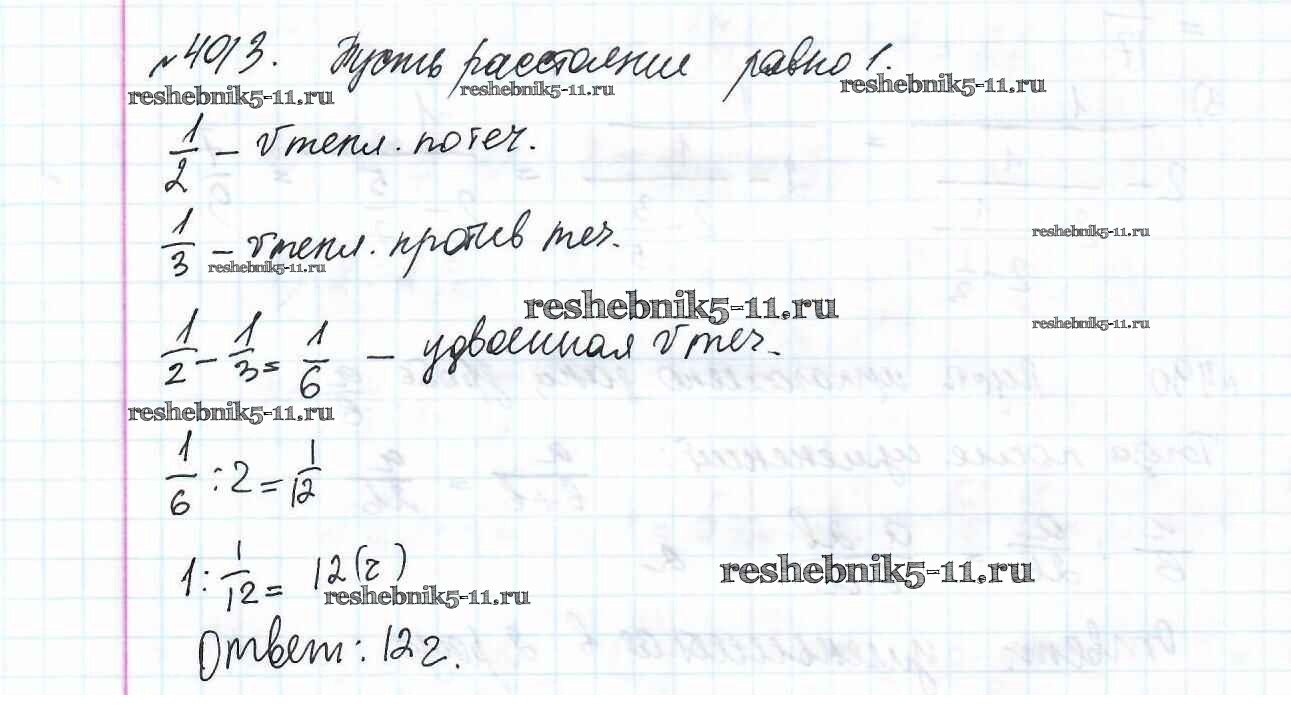 № 4013. Пусть расстояние равно 1.
reshebnik5-11.ru reshebnik5-11.ru reshebnik5-11.ru
1/2 – v тепл. по теч.
1/3 – v тепл. против теч.
reshebnik5-11.ru
reshebnik5-11.ru
reshebnik5-11.ru
reshebnik5-11.ru
1/2 – 1/3 = 1/6 – удвоенная v теч.
reshebnik5-11.ru
1/6 : 2 = 1/12
1 : 1/12 = 12 (ч)
reshebnik5-11.ru
reshebnik5-11.ru
Ответ: 12 ч.